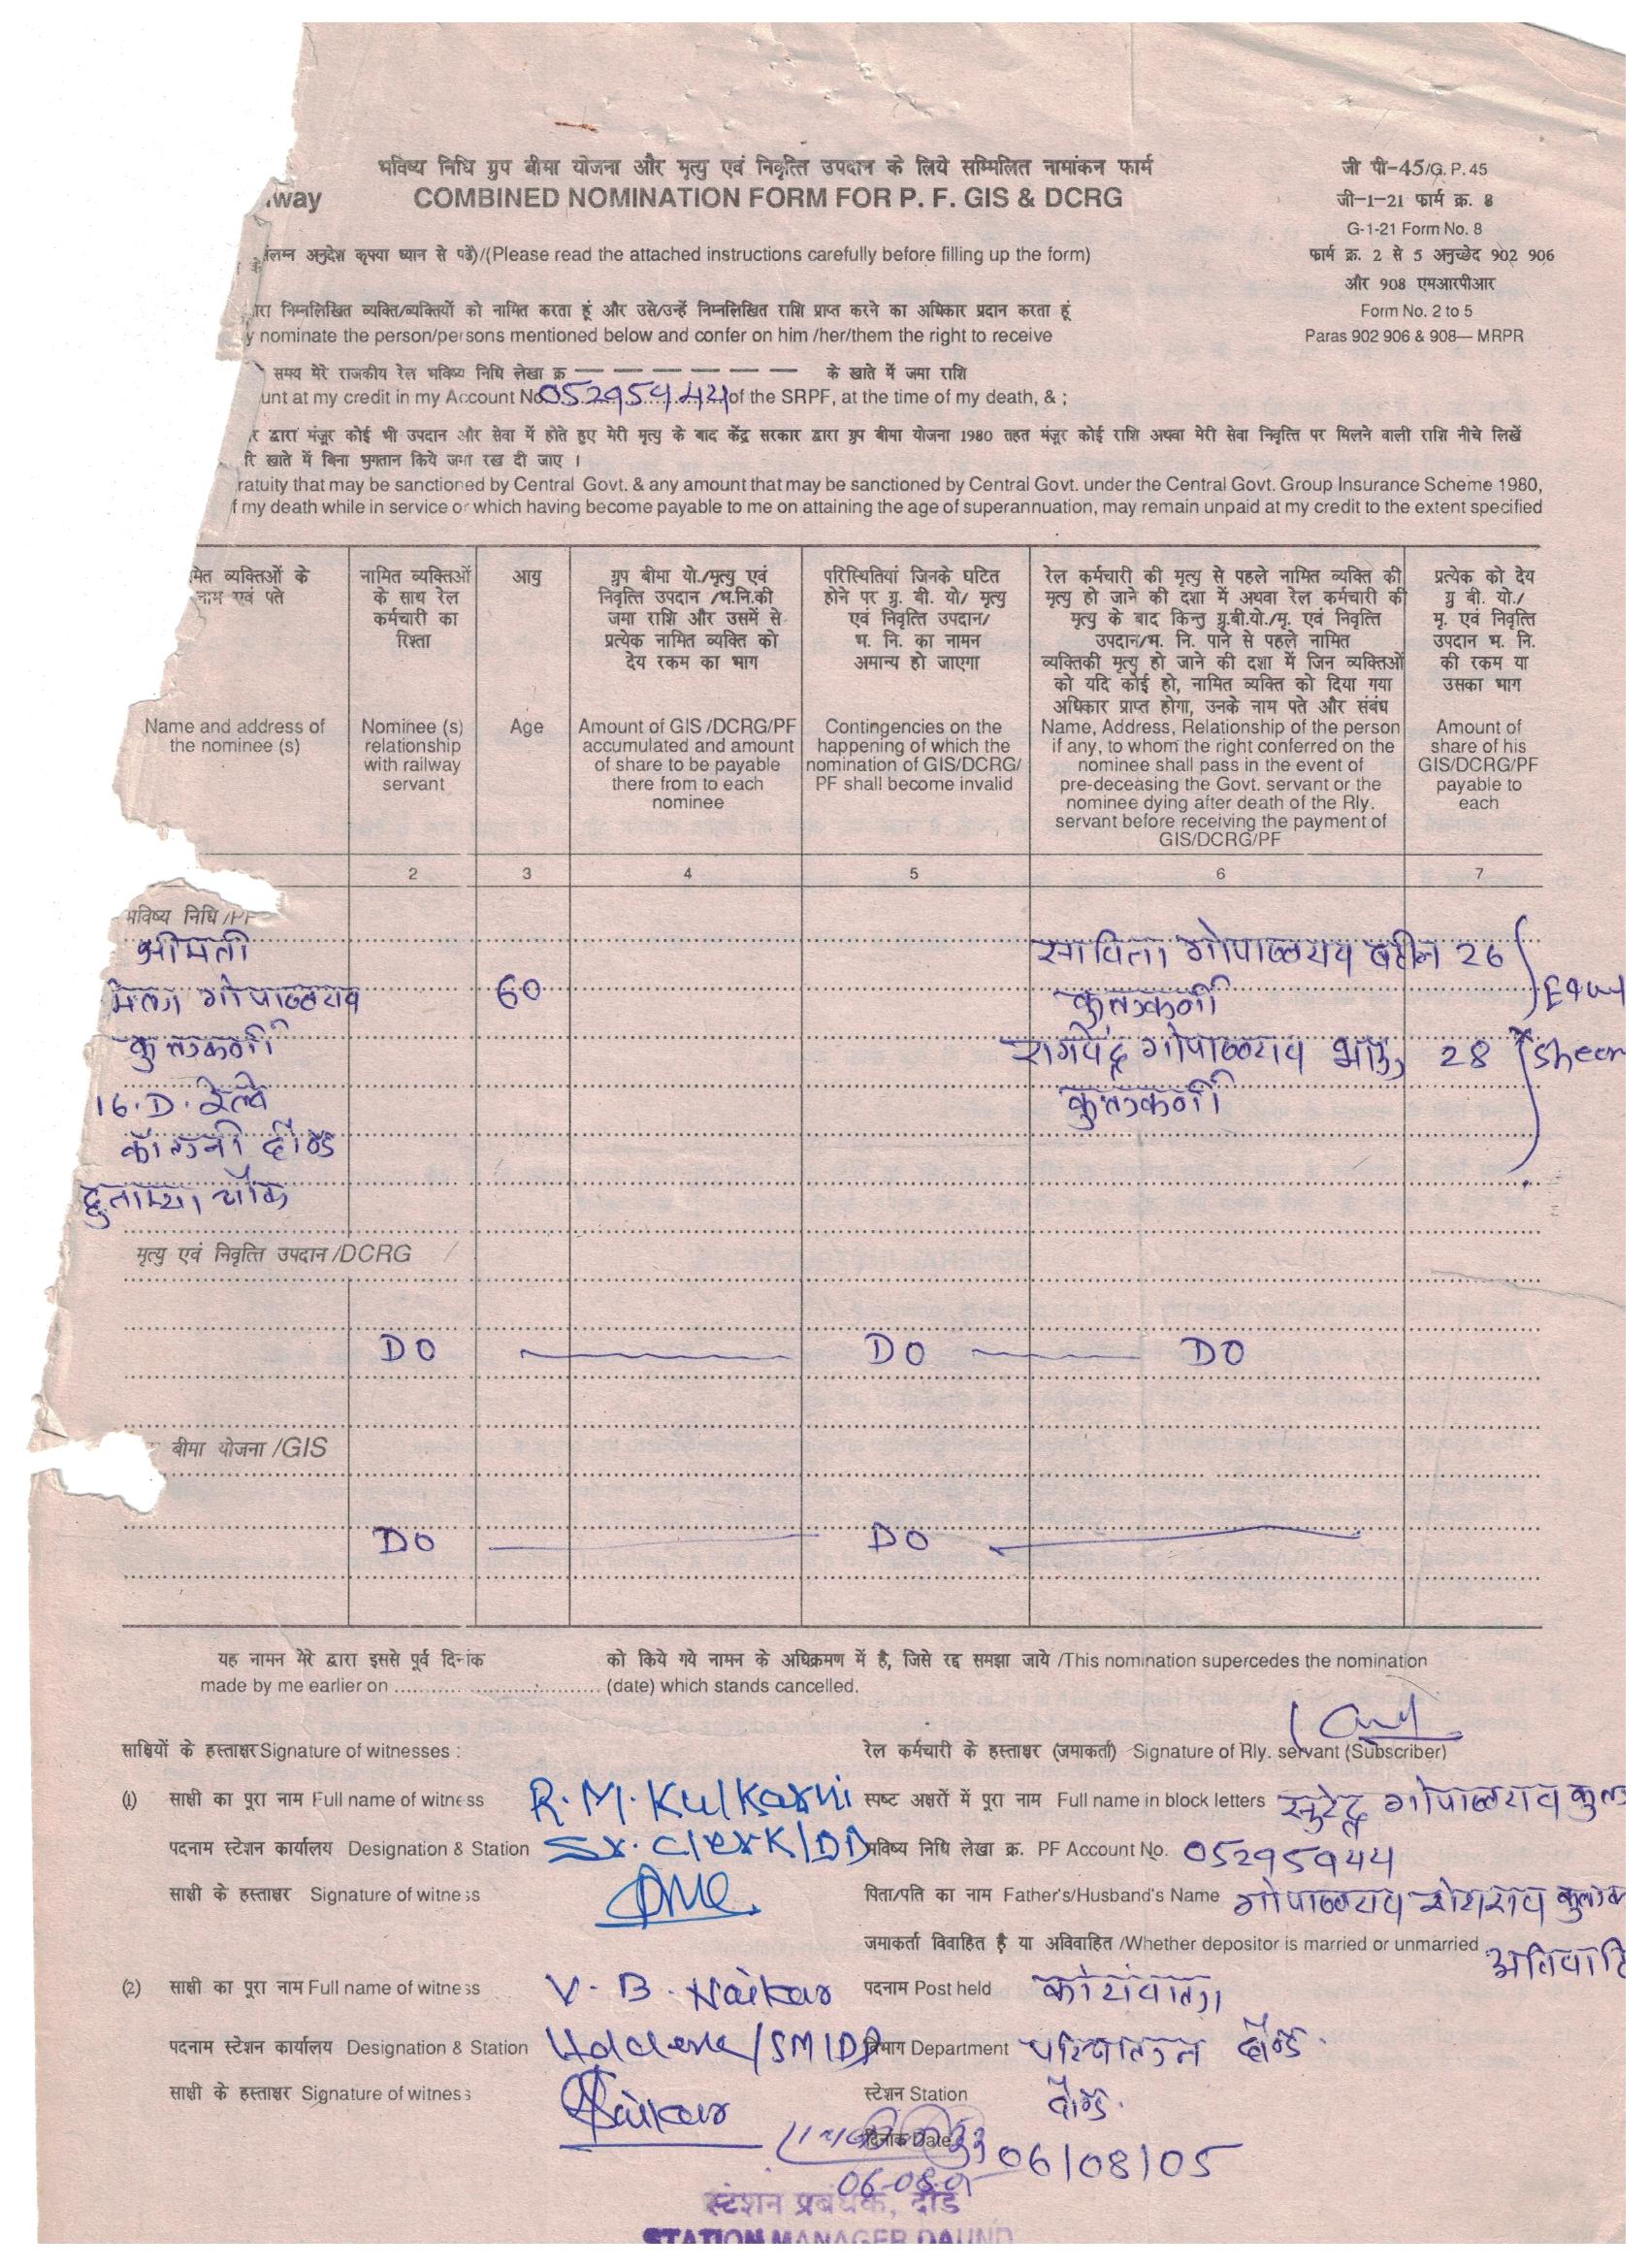 भविष्य निधि ग्रुप बीमा योजना और मृत्यु एवं निवृत्ति उपदान के लिये सम्मिलित नामांकन फार्म
way COMBINED NOMINATION FORM FOR P. F. GIS & DCRG
जी पी-45/G. P. 45
जी-1-21 फार्म क्र. 8
G-1-21 Form No. 8
फार्म क्र. 2 से 5 अनुच्छेद 902 906
और 908 एमआरपीआर
Form No. 2 to 5
Paras 902 906 & 908— MRPR
अनुदेश कृपया ध्यान से पढें)/(Please read the attached instructions carefully before filling up the form)
निम्नलिखित व्यक्ति/व्यक्तियों को नामित करता हूं और उसे/उन्हें निम्नलिखित राशि प्राप्त करने का अधिकार प्रदान करता हूं
y nominate the person/persons mentioned below and confer on him /her/them the right to receive
समय मेरे राजकीय रेल भविष्य निधि लेखा क्र — — — — — — — के खाते में जमा राशि
unt at my credit in my Account No 05295944 of the SRPF, at the time of my death, & ;
र द्वारा मंजूर कोई भी उपदान और सेवा में होते हुए मेरी मृत्यु के बाद केंद्र सरकार द्वारा ग्रुप बीमा योजना 1980 तहत मंजूर कोई राशि अथवा मेरी सेवा निवृत्ति पर मिलने वाली राशि नीचे लिखें
रे खाते में बिना भुगतान किये जमा रख दी जाए ।
ratuity that may be sanctioned by Central Govt. & any amount that may be sanctioned by Central Govt. under the Central Govt. Group Insurance Scheme 1980,
f my death while in service or which having become payable to me on attaining the age of superannuation, may remain unpaid at my credit to the extent specified
मित व्यक्तिओं के
नाम एवं पते
Name and address of
the nominee (s)
नामित व्यक्तिओं
के साथ रेल
कर्मचारी का
रिश्ता
Nominee (s)
relationship
with railway
servant
आयु
Age
ग्रुप बीमा यो./मृत्यु एवं
निवृत्ति उपदान /भ.नि.की
जमा राशि और उसमें से
प्रत्येक नामित व्यक्ति को
देय रकम का भाग
Amount of GIS /DCRG/PF
accumulated and amount
of share to be payable
there from to each
nominee
परिस्थितियां जिनके घटित
होने पर ग्रु. बी. यो/ मृत्यु
एवं निवृत्ति उपदान/
भ. नि. का नामन
अमान्य हो जाएगा
Contingencies on the
happening of which the
nomination of GIS/DCRG/
PF shall become invalid
रेल कर्मचारी की मृत्यु से पहले नामित व्यक्ति की
मृत्यु हो जाने की दशा में अथवा रेल कर्मचारी की
मृत्यु के बाद किन्तु ग्रु.बी.यो./मृ. एवं निवृत्ति
उपदान/भ. नि. पाने से पहले नामित
व्यक्तिकी मृत्यु हो जाने की दशा में जिन व्यक्तिओं
को यदि कोई हो, नामित व्यक्ति को दिया गया
अधिकार प्राप्त होगा, उनके नाम पते और संबंध
Name, Address, Relationship of the person
if any, to whom the right conferred on the
nominee shall pass in the event of
pre-deceasing the Govt. servant or the
nominee dying after death of the Rly.
servant before receiving the payment of
GIS/DCRG/PF
प्रत्येक को देय
ग्रु बी. यो./
मृ. एवं निवृत्ति
उपदान भ. नि.
की रकम या
उसका भाग
Amount of
share of his
GIS/DCRG/PF
payable to
each
2 3 4 5 6 7
भविष्य निधि /PF
श्रीमती गोपाळराव
कुलकर्णी
16. D. रेल्वे
कॉलनी दौण्ड
हुतात्मा चौक
60
सविता गोपाळराव बहीन 26
कुलकर्णी
राघवेंद्र गोपाळराव भाऊ 28
कुलकर्णी
Equal
मृत्यु एवं निवृत्ति उपदान /DCRG
DO DO DO
बीमा योजना /GIS
DO DO
यह नामन मेरे द्वारा इससे पूर्व दिनांक को किये गये नामन के अधिक्रमण में है, जिसे रद्द समझा जाये /This nomination supercedes the nomination
made by me earlier on .................................... (date) which stands cancelled.
साक्षियों के हस्ताक्षर Signature of witnesses :
रेल कर्मचारी के हस्ताक्षर (जमाकर्ता) Signature of Rly. servant (Subscriber)
(1) साक्षी का पूरा नाम Full name of witness R. M. Kulkarni
स्पष्ट अक्षरों में पूरा नाम Full name in block letters सुरेंद्र गोपाळराव कुल
पदनाम स्टेशन कार्यालय Designation & Station Sr. Clerk/DD
भविष्य निधि लेखा क्र. PF Account No. 05295944
साक्षी के हस्ताक्षर Signature of witness
पिता/पति का नाम Father's/Husband's Name गोपाळराव
जमाकर्ता विवाहित है या अविवाहित /Whether depositor is married or unmarried अविवाहि
(2) साक्षी का पूरा नाम Full name of witness V. B. Naikar
पदनाम Post held कांटेवाला
पदनाम स्टेशन कार्यालय Designation & Station
विभाग Department परिचालन दौण्ड.
साक्षी के हस्ताक्षर Signature of witness Naikar
स्टेशन Station दौण्ड.
दिनांक Date 06/08/05
स्टेशन प्रबंधक, दौंड
STATION MANAGER DAUND